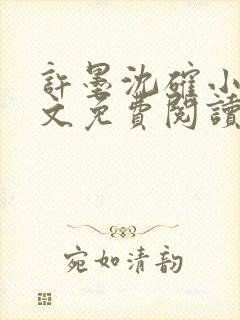 許墨沈確小
文免費閱讀
宛如清韵